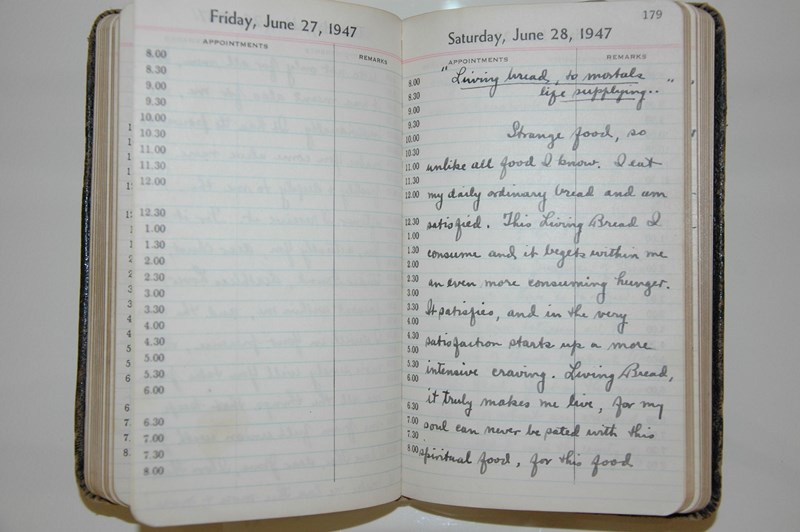 Friday, June 27, 1947
APPOINTMENTS
REMARKS
8.00
8.30
9.00
9.30
10.00
10.30
11.00
11.30
12.00
12.30
1.00
1.30
2.00
2.30
3.00
3.30
4.00
4.30
5.00
5.30
6.00
6.30
7.00
7.30
8.00
179
Saturday, June 28, 1947
APPOINTMENTS
REMARKS
8.00 "Living bread, to mortals
8.30 life supplying.."
9.00
9.30
10.00 Strange food, so
10.30
11.00 unlike all food I know. I eat
11.30
12.00 my daily ordinary bread and am
12.30 satisfied. This Living Bread I
1.00
1.30 consume and it begets within me
2.00
2.30 an even more consuming hunger.
3.00
3.30 It satisfies, and in the very
4.00
4.30 satisfaction starts up a more
5.00
5.30 intensive craving. Living Bread,
6.00
6.30 it truly makes me live, for my
7.00 soul can never be sated with this
7.30
8.00 spiritual food, for this food